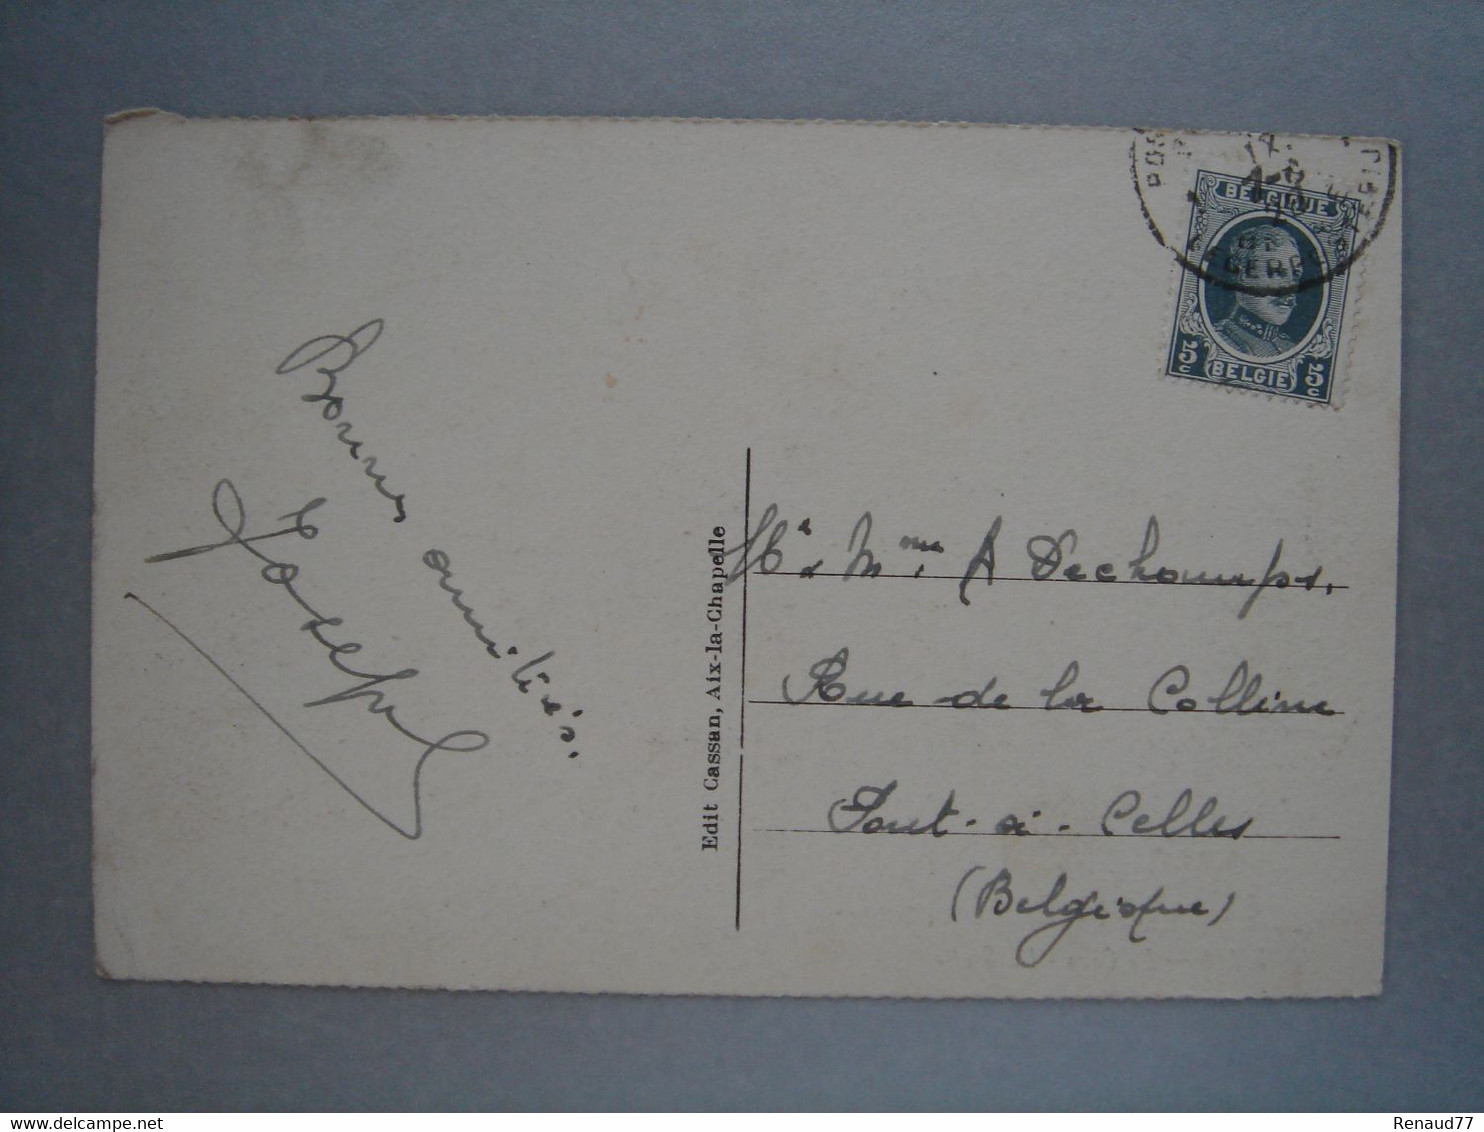 BELGIQUE
5c BELGIE 5c
Bonnes amitiés.
Joseph
Edit Cassan, Aix-la-Chapelle
Mr & Mme A Dechamps.
Rue de la Colline
Pont-à-Celles
(Belgique)
delcampe.net
Renaud77